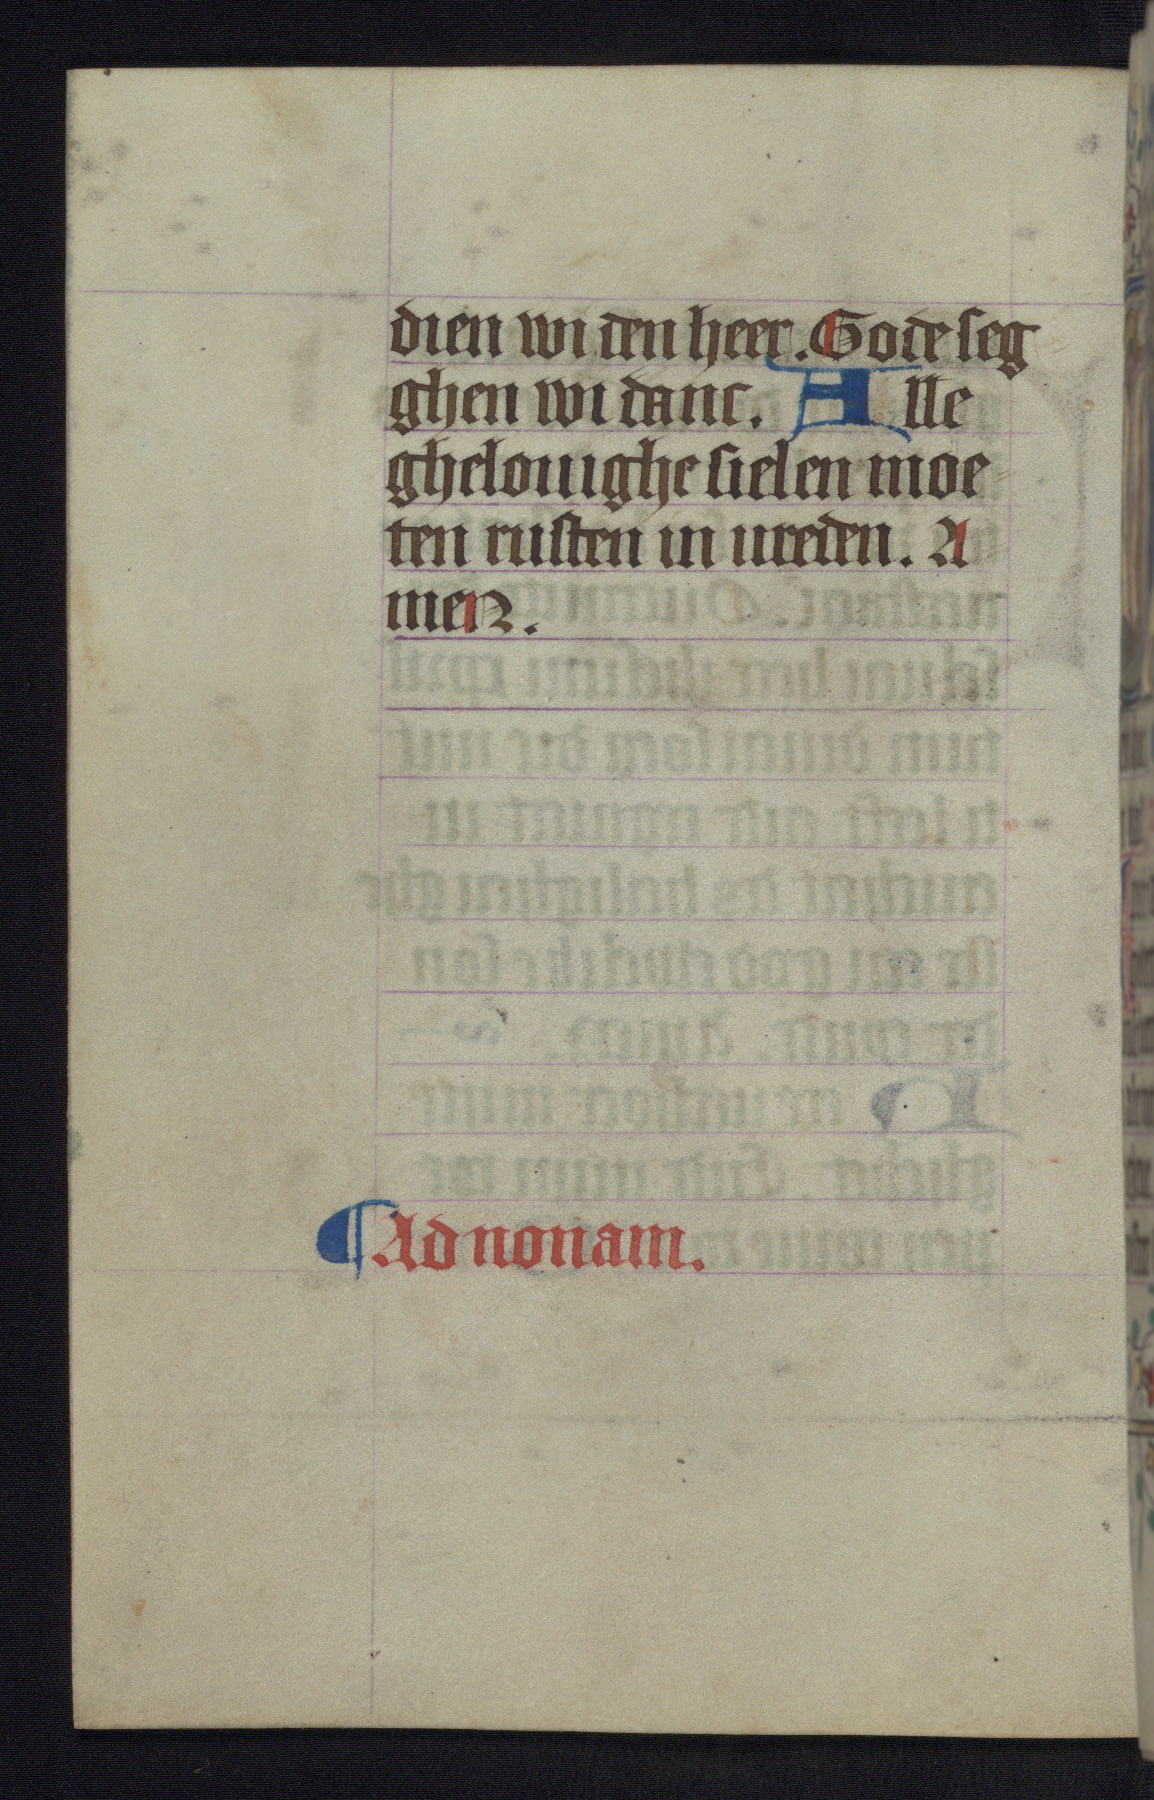 dien wi den heer. Gode seg
ghen wi danc. Alle
ghelouighe sielen moe
ten rusten in ureden. A
men.
¶ Ad nonam.